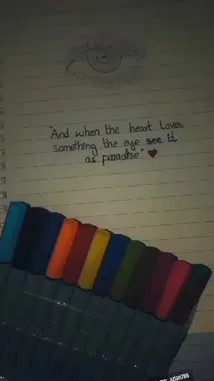 "And when the heart loves
something the eye see it
as paradise"